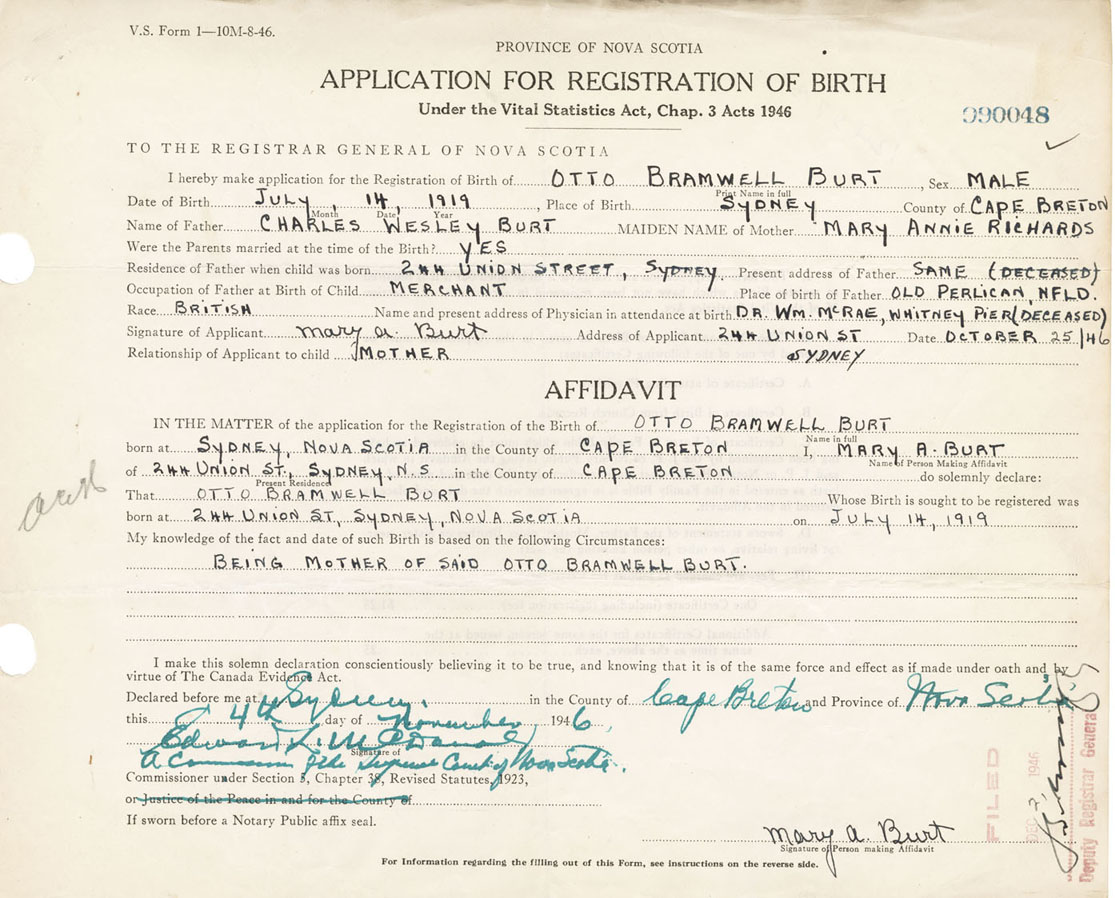 V.S. Form 1—10M-8-46.
PROVINCE OF NOVA SCOTIA
APPLICATION FOR REGISTRATION OF BIRTH
Under the Vital Statistics Act, Chap. 3 Acts 1946
090048
TO THE REGISTRAR GENERAL OF NOVA SCOTIA
I hereby make application for the Registration of Birth of OTTO BRAMWELL BURT, Sex MALE
Print Name in full
Date of Birth JULY, 14, 1919, Place of Birth SYDNEY County of CAPE BRETON
Month Date Year
Name of Father CHARLES WESLEY BURT MAIDEN NAME of Mother MARY ANNIE RICHARDS
Were the Parents married at the time of the Birth? YES
Residence of Father when child was born 244 UNION STREET, SYDNEY Present address of Father SAME (DECEASED)
Occupation of Father at Birth of Child MERCHANT Place of birth of Father OLD PERLICAN, NFLD.
Race BRITISH Name and present address of Physician in attendance at birth DR. WM. MCRAE, WHITNEY PIER (DECEASED)
Signature of Applicant Mary A. Burt Address of Applicant 244 UNION ST Date OCTOBER 25/46
Relationship of Applicant to child MOTHER SYDNEY
AFFIDAVIT
IN THE MATTER of the application for the Registration of the Birth of OTTO BRAMWELL BURT
Name in full
born at SYDNEY, NOVA SCOTIA in the County of CAPE BRETON I, MARY A. BURT
Name of Person Making Affidavit
of 244 UNION ST., SYDNEY, N.S. in the County of CAPE BRETON do solemnly declare:
Present Residence
That OTTO BRAMWELL BURT Whose Birth is sought to be registered was
born at 244 UNION ST, SYDNEY, NOVA SCOTIA on JULY 14, 1919
My knowledge of the fact and date of such Birth is based on the following Circumstances:
BEING MOTHER OF SAID OTTO BRAMWELL BURT.
I make this solemn declaration conscientiously believing it to be true, and knowing that it is of the same force and effect as if made under oath and by
virtue of The Canada Evidence Act.
Declared before me at Sydney. in the County of Cape Breton and Province of Nova Scotia
this 4th day of November, 1946,
Edward L. McDonald
Signature of
A Commissioner of the Supreme Court of Nova Scotia.
Commissioner under Section 3, Chapter 38, Revised Statutes, 1923,
or Justice of the Peace in and for the County of
If sworn before a Notary Public affix seal.
Mary A. Burt
Signature of Person making Affidavit
For Information regarding the filling out of this Form, see instructions on the reverse side.
FILED
DEC 1946
Deputy Registrar General